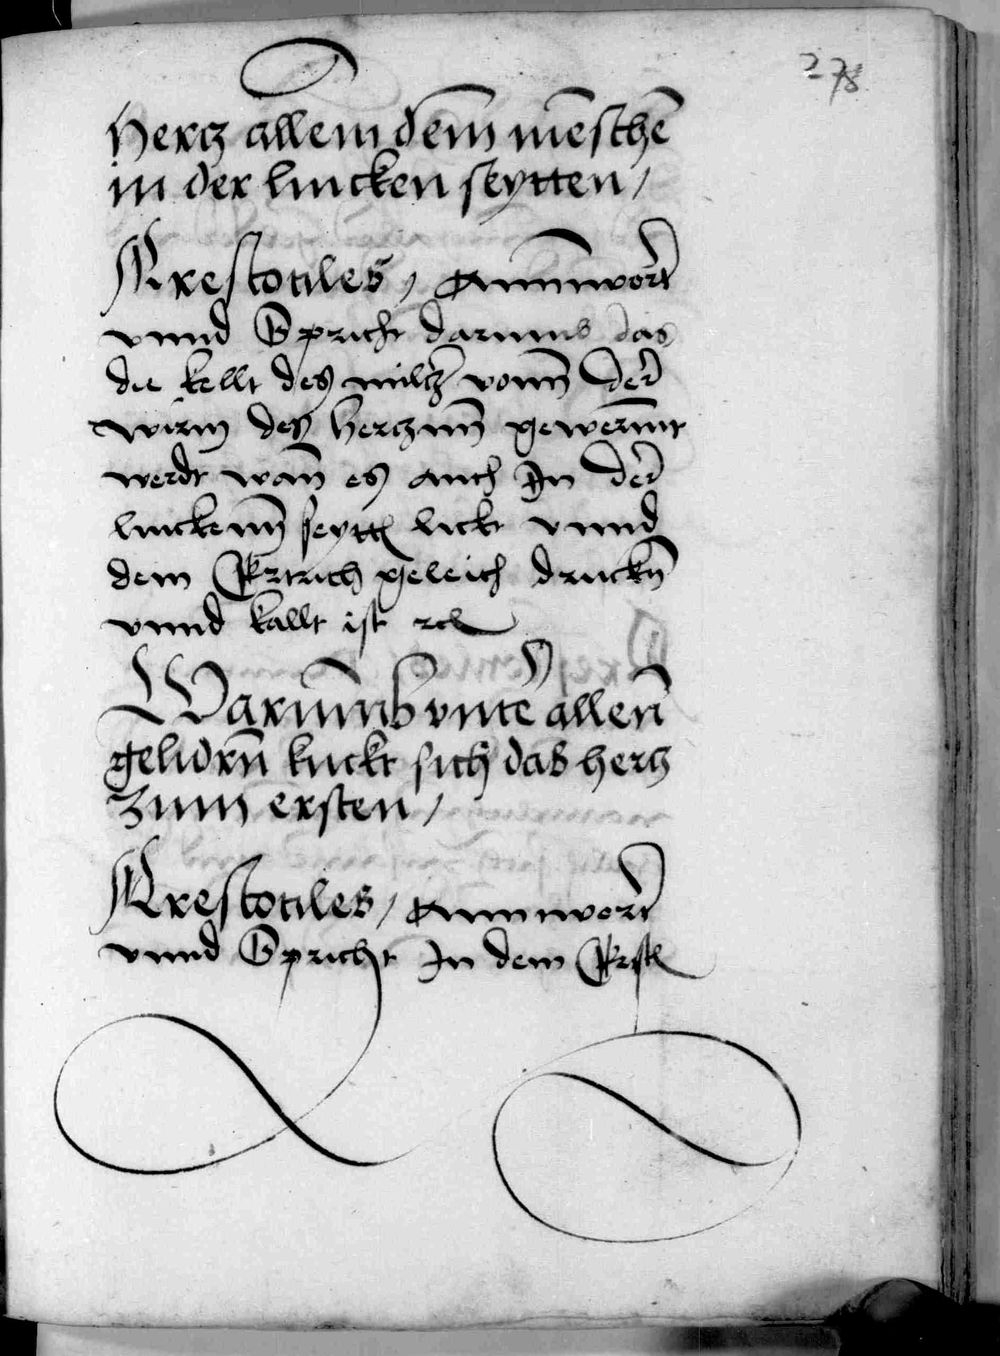 278
Hertz allein dem̄ mēschē
in der lincken seytten /
Arestotiles / Anntwort
vnnd Spricht darumb das
die kellt des miltz vonn der
wirm des hertznn gewermt
werdt wan̄ es auch In der
linckenn seytt lickt vnnd
dem Ertrich geleich druckn̄
vnnd kallt ist rc
Warumb vnter allen̄
gelidrn̄ kuckt sich das hertz
zum ersten /
Arestotiles / Anntwort
vnnd Spricht In dem Erst